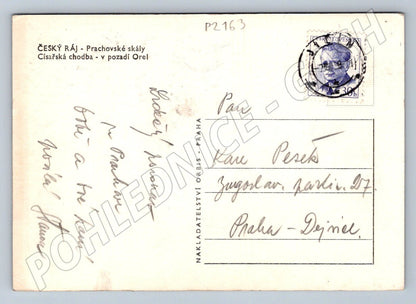 PZ163
ČESKÝ RÁJ - Prachovské skály
Císařská chodba - v pozadí Orel
JIČÍN
30h
Srdečný pozdrav
z Prachova
Tobě a
posílá
NAKLADATELSTVÍ ORBIS - PRAHA
Pan
Kare Pešek
Jugoslav. partiz. 27
Praha - Dejvice
POHLEDNICE - ČECH